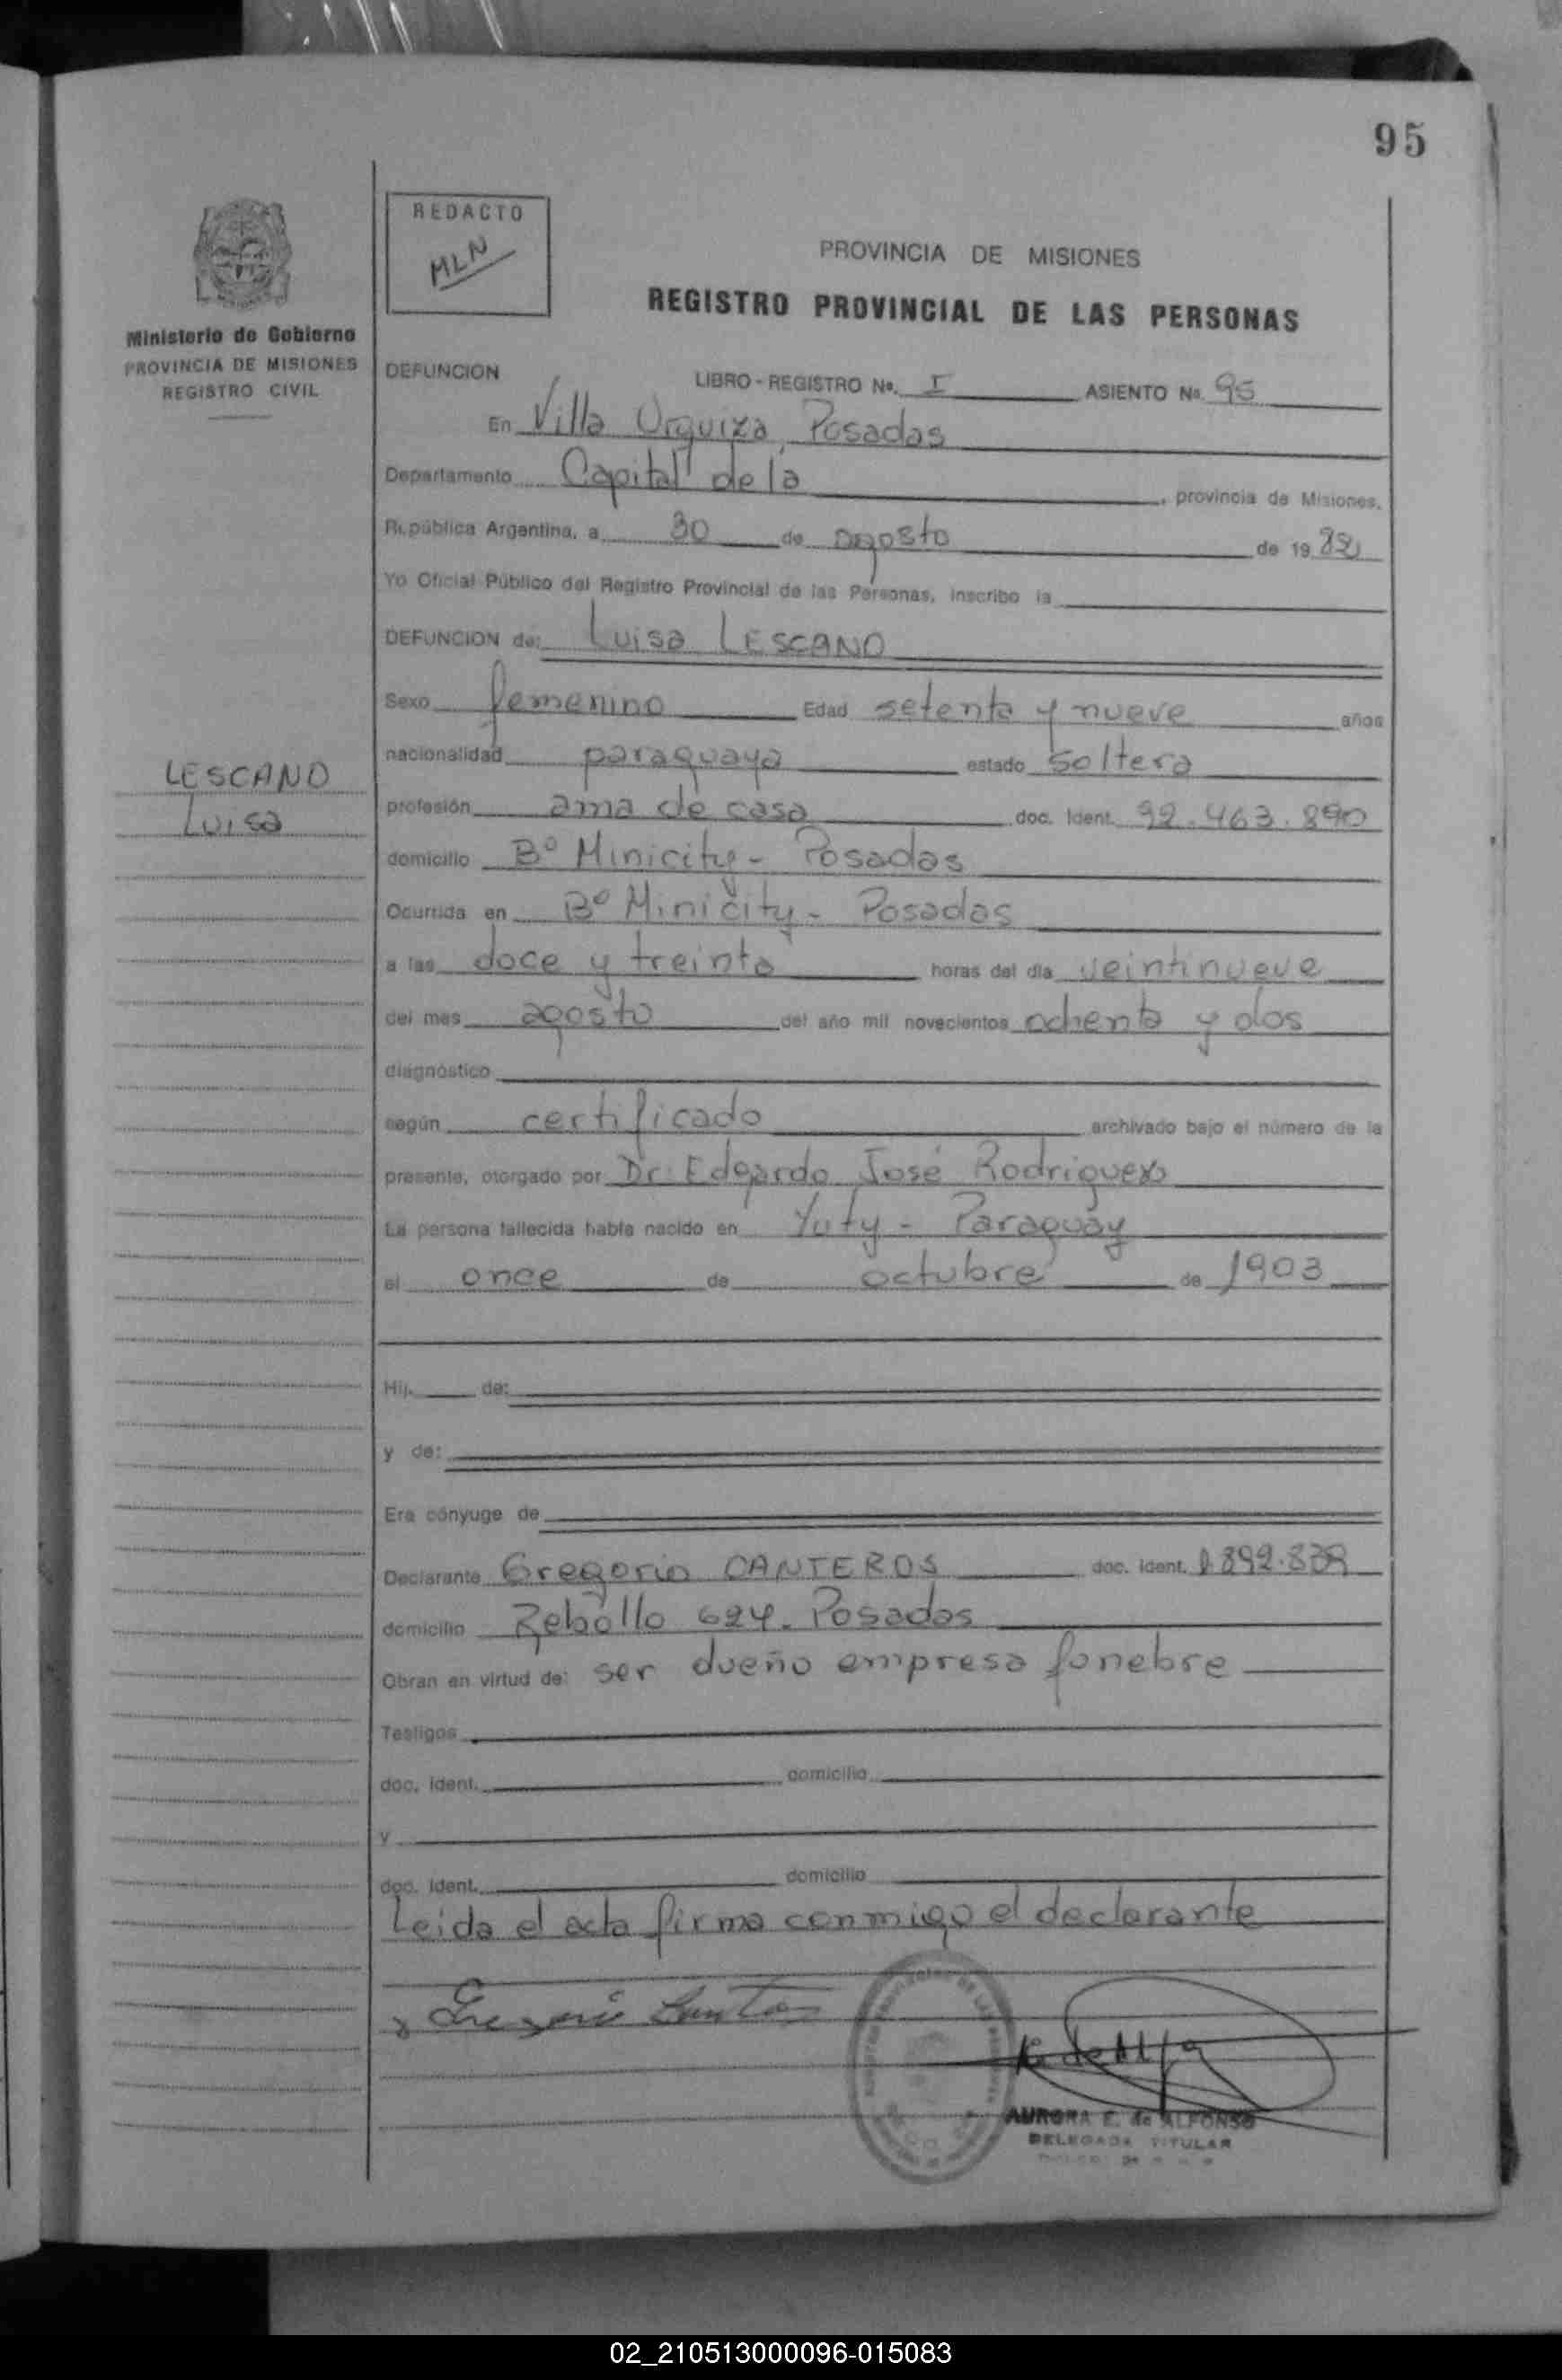 95
REDACTO
MLN
PROVINCIA DE MISIONES
REGISTRO PROVINCIAL DE LAS PERSONAS
Ministerio de Gobierno
PROVINCIA DE MISIONES
REGISTRO CIVIL
DEFUNCION LIBRO - REGISTRO No. I ASIENTO No. 95
En Villa Urquiza, Posadas
Departamento Capital de la , provincia de Misiones,
República Argentina, a 30 de agosto de 19 82
Yo Oficial Público del Registro Provincial de las Personas, inscribo la
DEFUNCION de: Luisa LESCANO
Sexo femenino Edad setenta y nueve años
nacionalidad paraguaya estado soltera
LESCANO
Luisa
profesión ama de casa doc. Ident. 92.463.890
domicilio Bº Minicity - Posadas
Ocurrida en Bº Minicity - Posadas
a las doce y treinta horas del día veintinueve
del mes agosto del año mil novecientos ochenta y dos
diagnóstico
según certificado archivado bajo el número de la
presente, otorgado por Dr. Edgardo José Rodriguez
La persona fallecida había nacido en Yuty - Paraguay
el once de octubre de 1903
Hij de:
y de:
Era cónyuge de
Declarante Gregorio CANTEROS doc. Ident.
domicilio Rebollo 624. Posadas
Obran en virtud de: ser dueño empresa fonebre
Testigos
doc. Ident. domicilio
y
doc. Ident. domicilio
Leida el acta firma conmigo el declarante
AURORA E. de ALFONSO
DELEGADA TITULAR
02_210513000096-015083